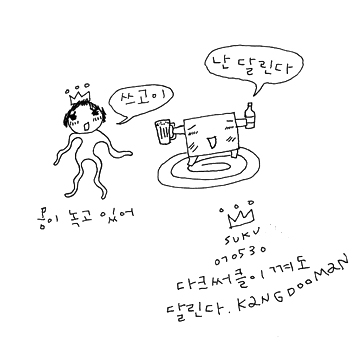 쓰고이
난 달린다
몸이 녹고 있어
SUKU
070530
다크써클이 껴도
달린다. KANGDOOMAN